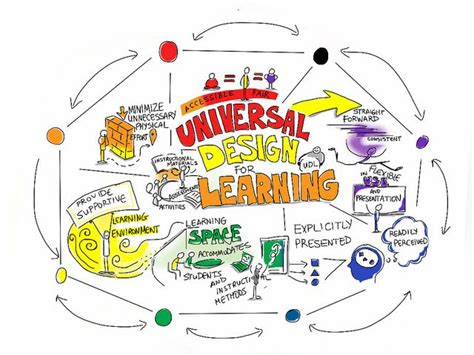 ACCESSIBLE FAIR
UNIVERSAL
DESIGN
FOR
LEARNING
UDL
MINIMIZE
UNNECESSARY
PHYSICAL
EFFORT
STRAIGHT
FORWARD
CONSISTENT
FLEXIBLE
IN USE
AND
PRESENTATION
INSTRUCTIONAL
MATERIALS
ACTIVITIES
PROVIDE
SUPPORTIVE
LEARNING
ENVIRONMENT
LEARNING
SPACE
ACCOMMODATES
STUDENTS
AND INSTRUCTIONAL
METHODS
EXPLICITLY
PRESENTED
READILY
PERCEIVED